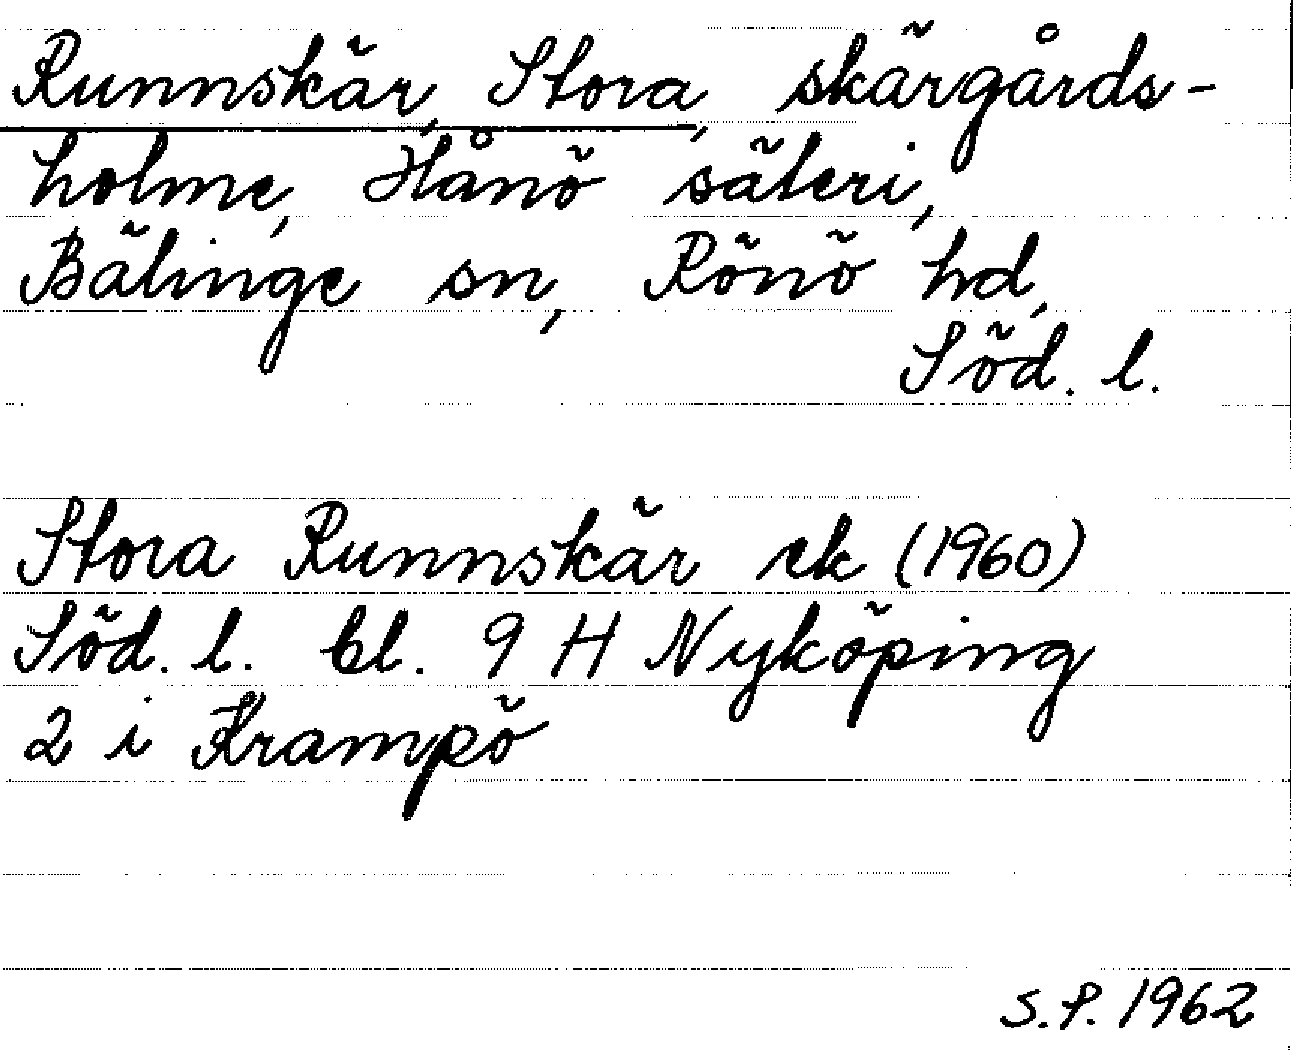 Runnskär, Stora, skärgårds-
holme, Hånö säteri,
Bälinge sn, Rönö hd,
Söd. l.
Stora Runnskär ek (1960)
Söd. l. bl. 9 H Nyköping
2 i Krampö
S.P. 1962